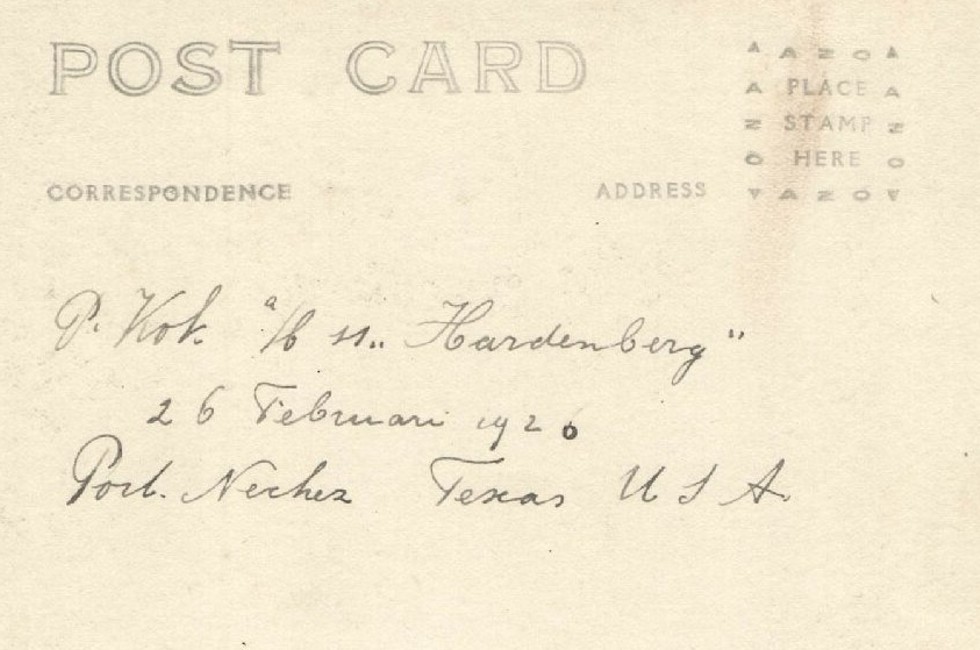 POST CARD
AZO
A PLACE A
N STAMP N
O HERE O
AZO
CORRESPONDENCE
ADDRESS
P. Kok. a/b ss „Hardenberg"
26 Februari 1926
Port. Neches Texas U S A.